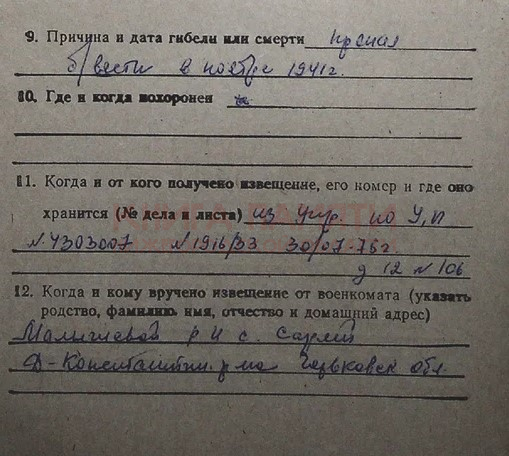 9. Причина и дата гибели или смерти пропал
б/вести в ноябре 1941г.
10. Где и когда похоронен
11. Когда и от кого получено извещение, его номер и где оно
хранится (№ дела и листа) из Упр. по У,П
№ 4303007 № 1916/33 30/07-76 г
д 12 № 106
12. Когда и кому вручено извещение от военкомата (указать
родство, фамилию имя, отчество и домашний адрес)
с.
Д-Константин. р-на Горьковск обл